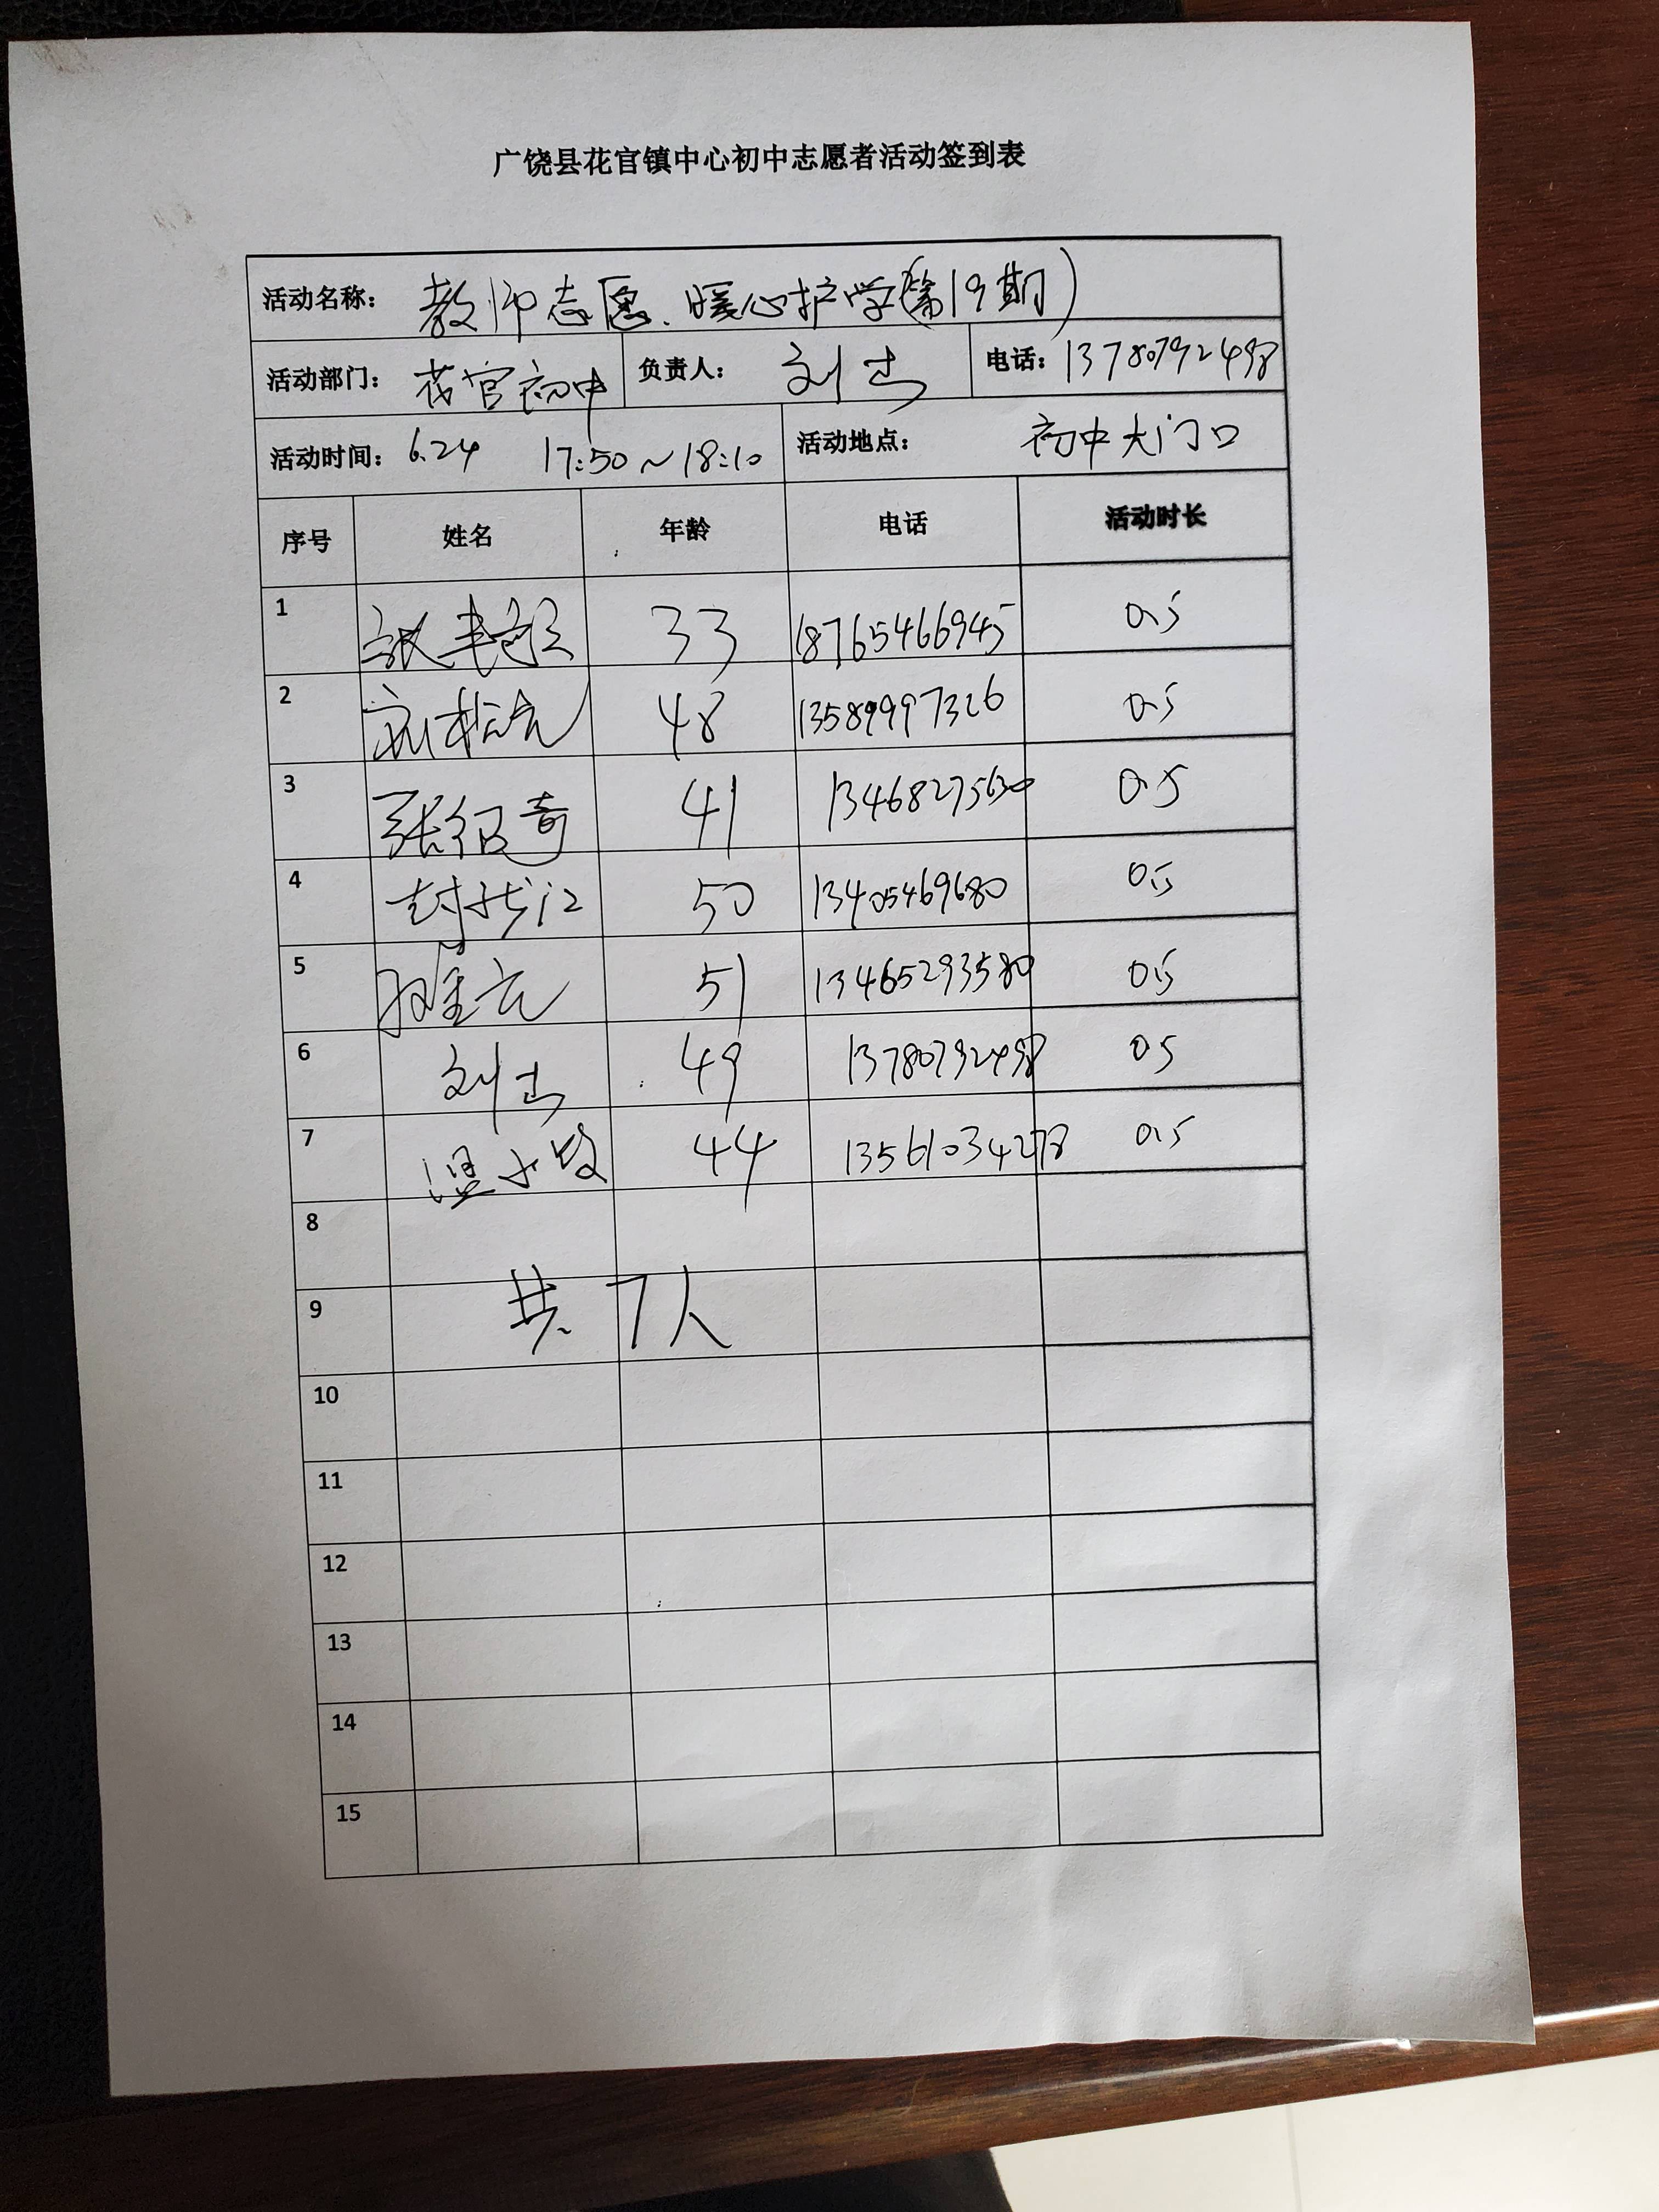 广饶县花官镇中心初中志愿者活动签到表
活动名称： 教师志愿.暖心护学(第19期)
活动部门： 花官初中 负责人： 刘 电话： 13780792498
活动时间： 6.24 17:50~18:10 活动地点： 初中大门口
序号 姓名 年龄 电话 活动时长
1 33 18765466945 0.5
2 刘 48 13589997326 0.5
3 张绍奇 41 13468275630 0.5
4 封 江 50 13405469680 0.5
5 51 13465293580 0.5
6 刘 49 13780792498 0.5
7 温 44 13561034278 0.5
8
9 共7人
10
11
12
13
14
15